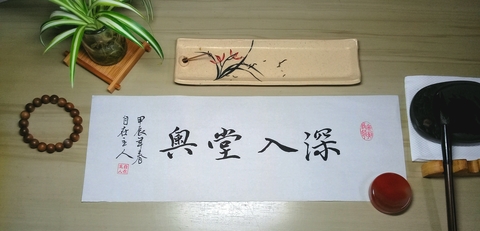 深入堂奥
甲辰年春
自在主人